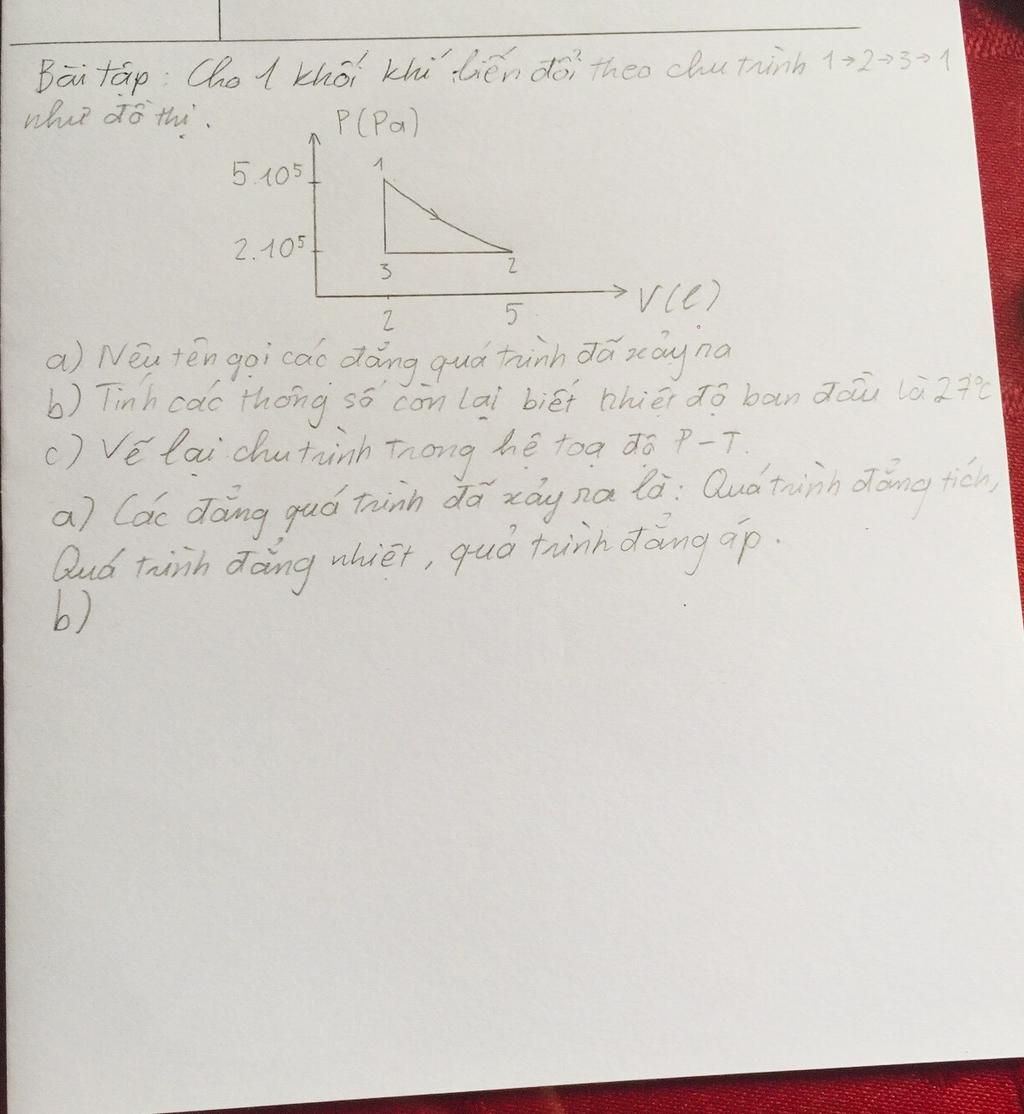 Bài tập: Cho 1 khối khí biến đổi theo chu trình 1→2→3→1
như đồ thị.
P(Pa)
5.10⁵
1
2.10⁵
3
2
V(l)
2
5
a) Nêu tên gọi các đẳng quá trình đã xảy ra
b) Tính các thông số còn lại biết nhiệt độ ban đầu là 27°C
c) Vẽ lại chu trình trong hệ toạ độ P-T.
a) Các đẳng quá trình đã xảy ra là: Quá trình đẳng tích,
Quá trình đẳng nhiệt, quá trình đẳng áp.
b)